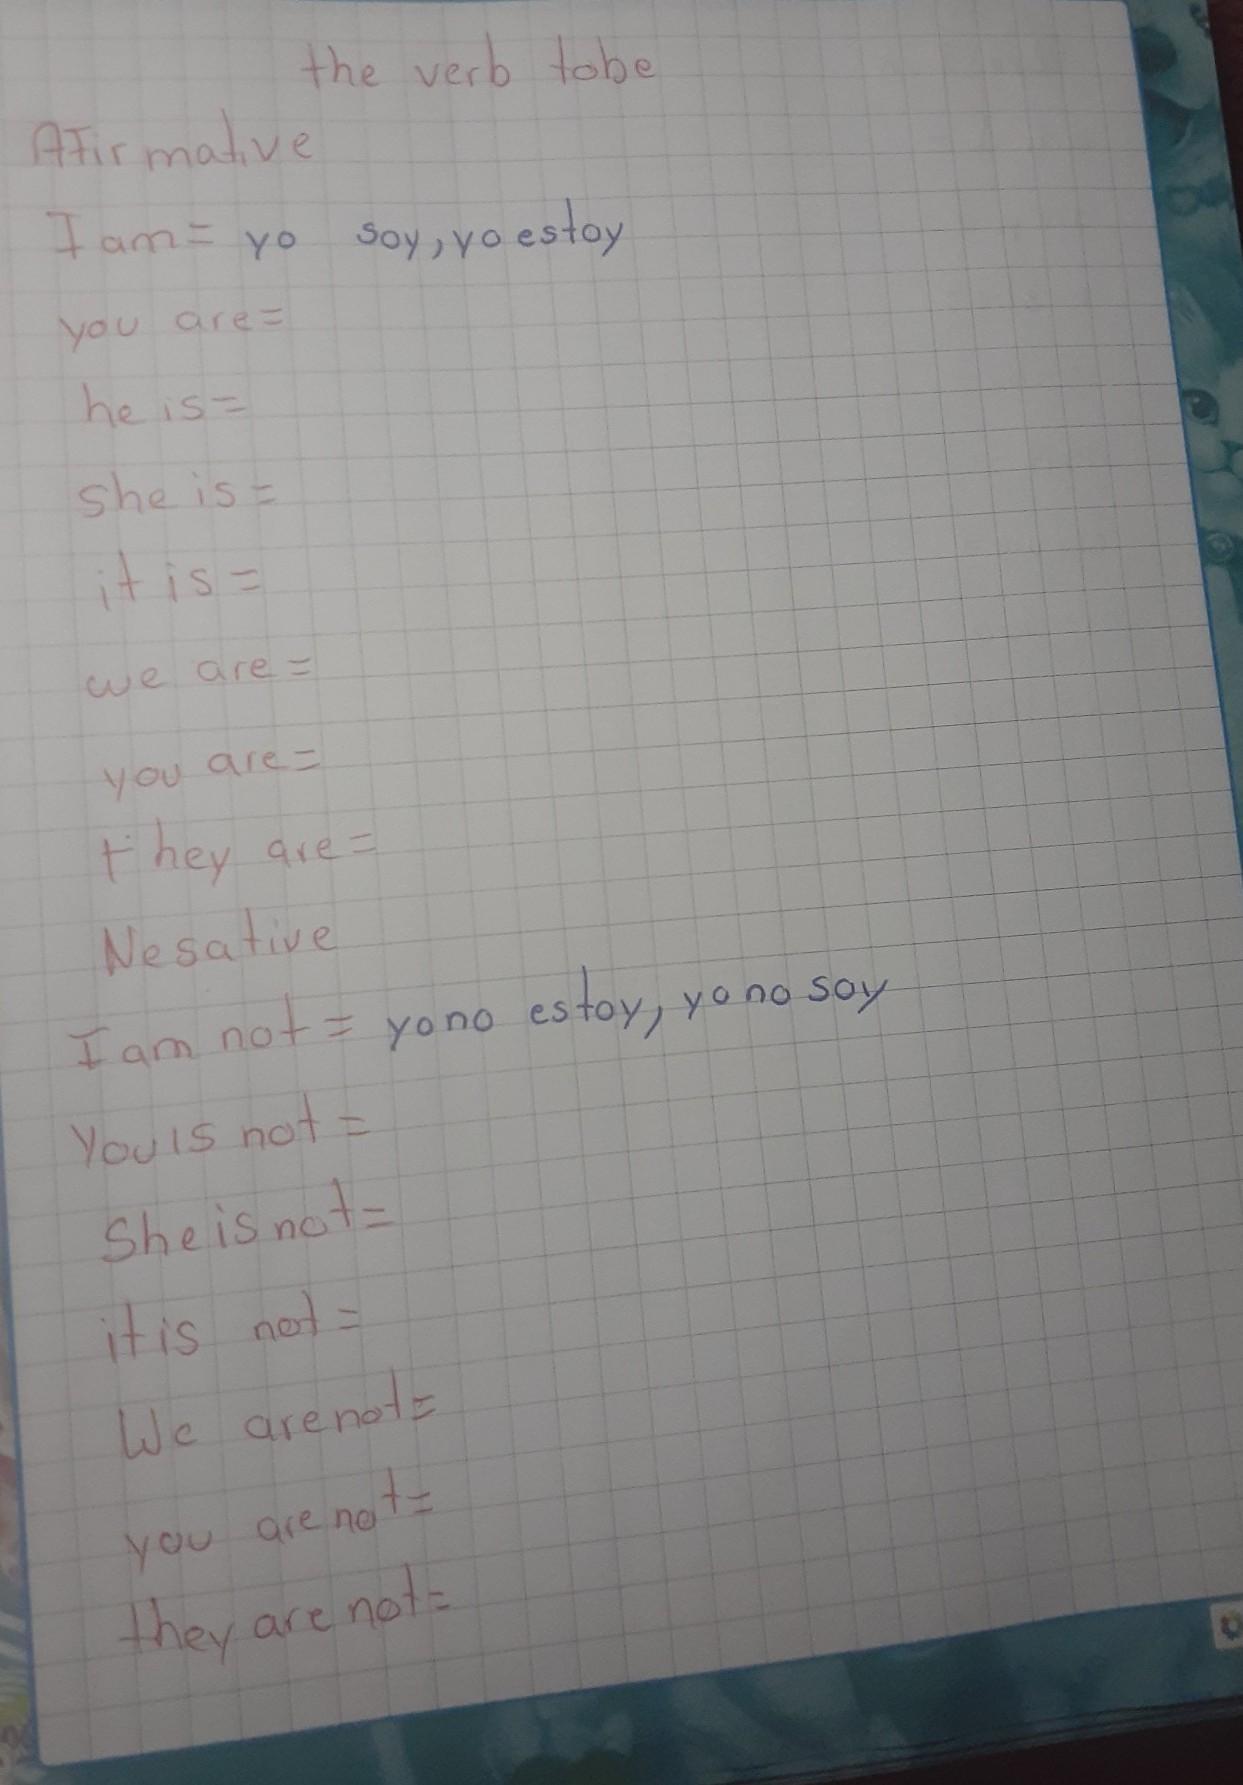 the verb tobe
Afirmative
I am = yo soy, yo estoy
you are =
he is =
she is =
it is =
we are =
you are =
they are =
Nesative
I am not = yo no estoy, yo no soy
You is not =
She is not =
it is not =
We are not =
you are not =
they are not =